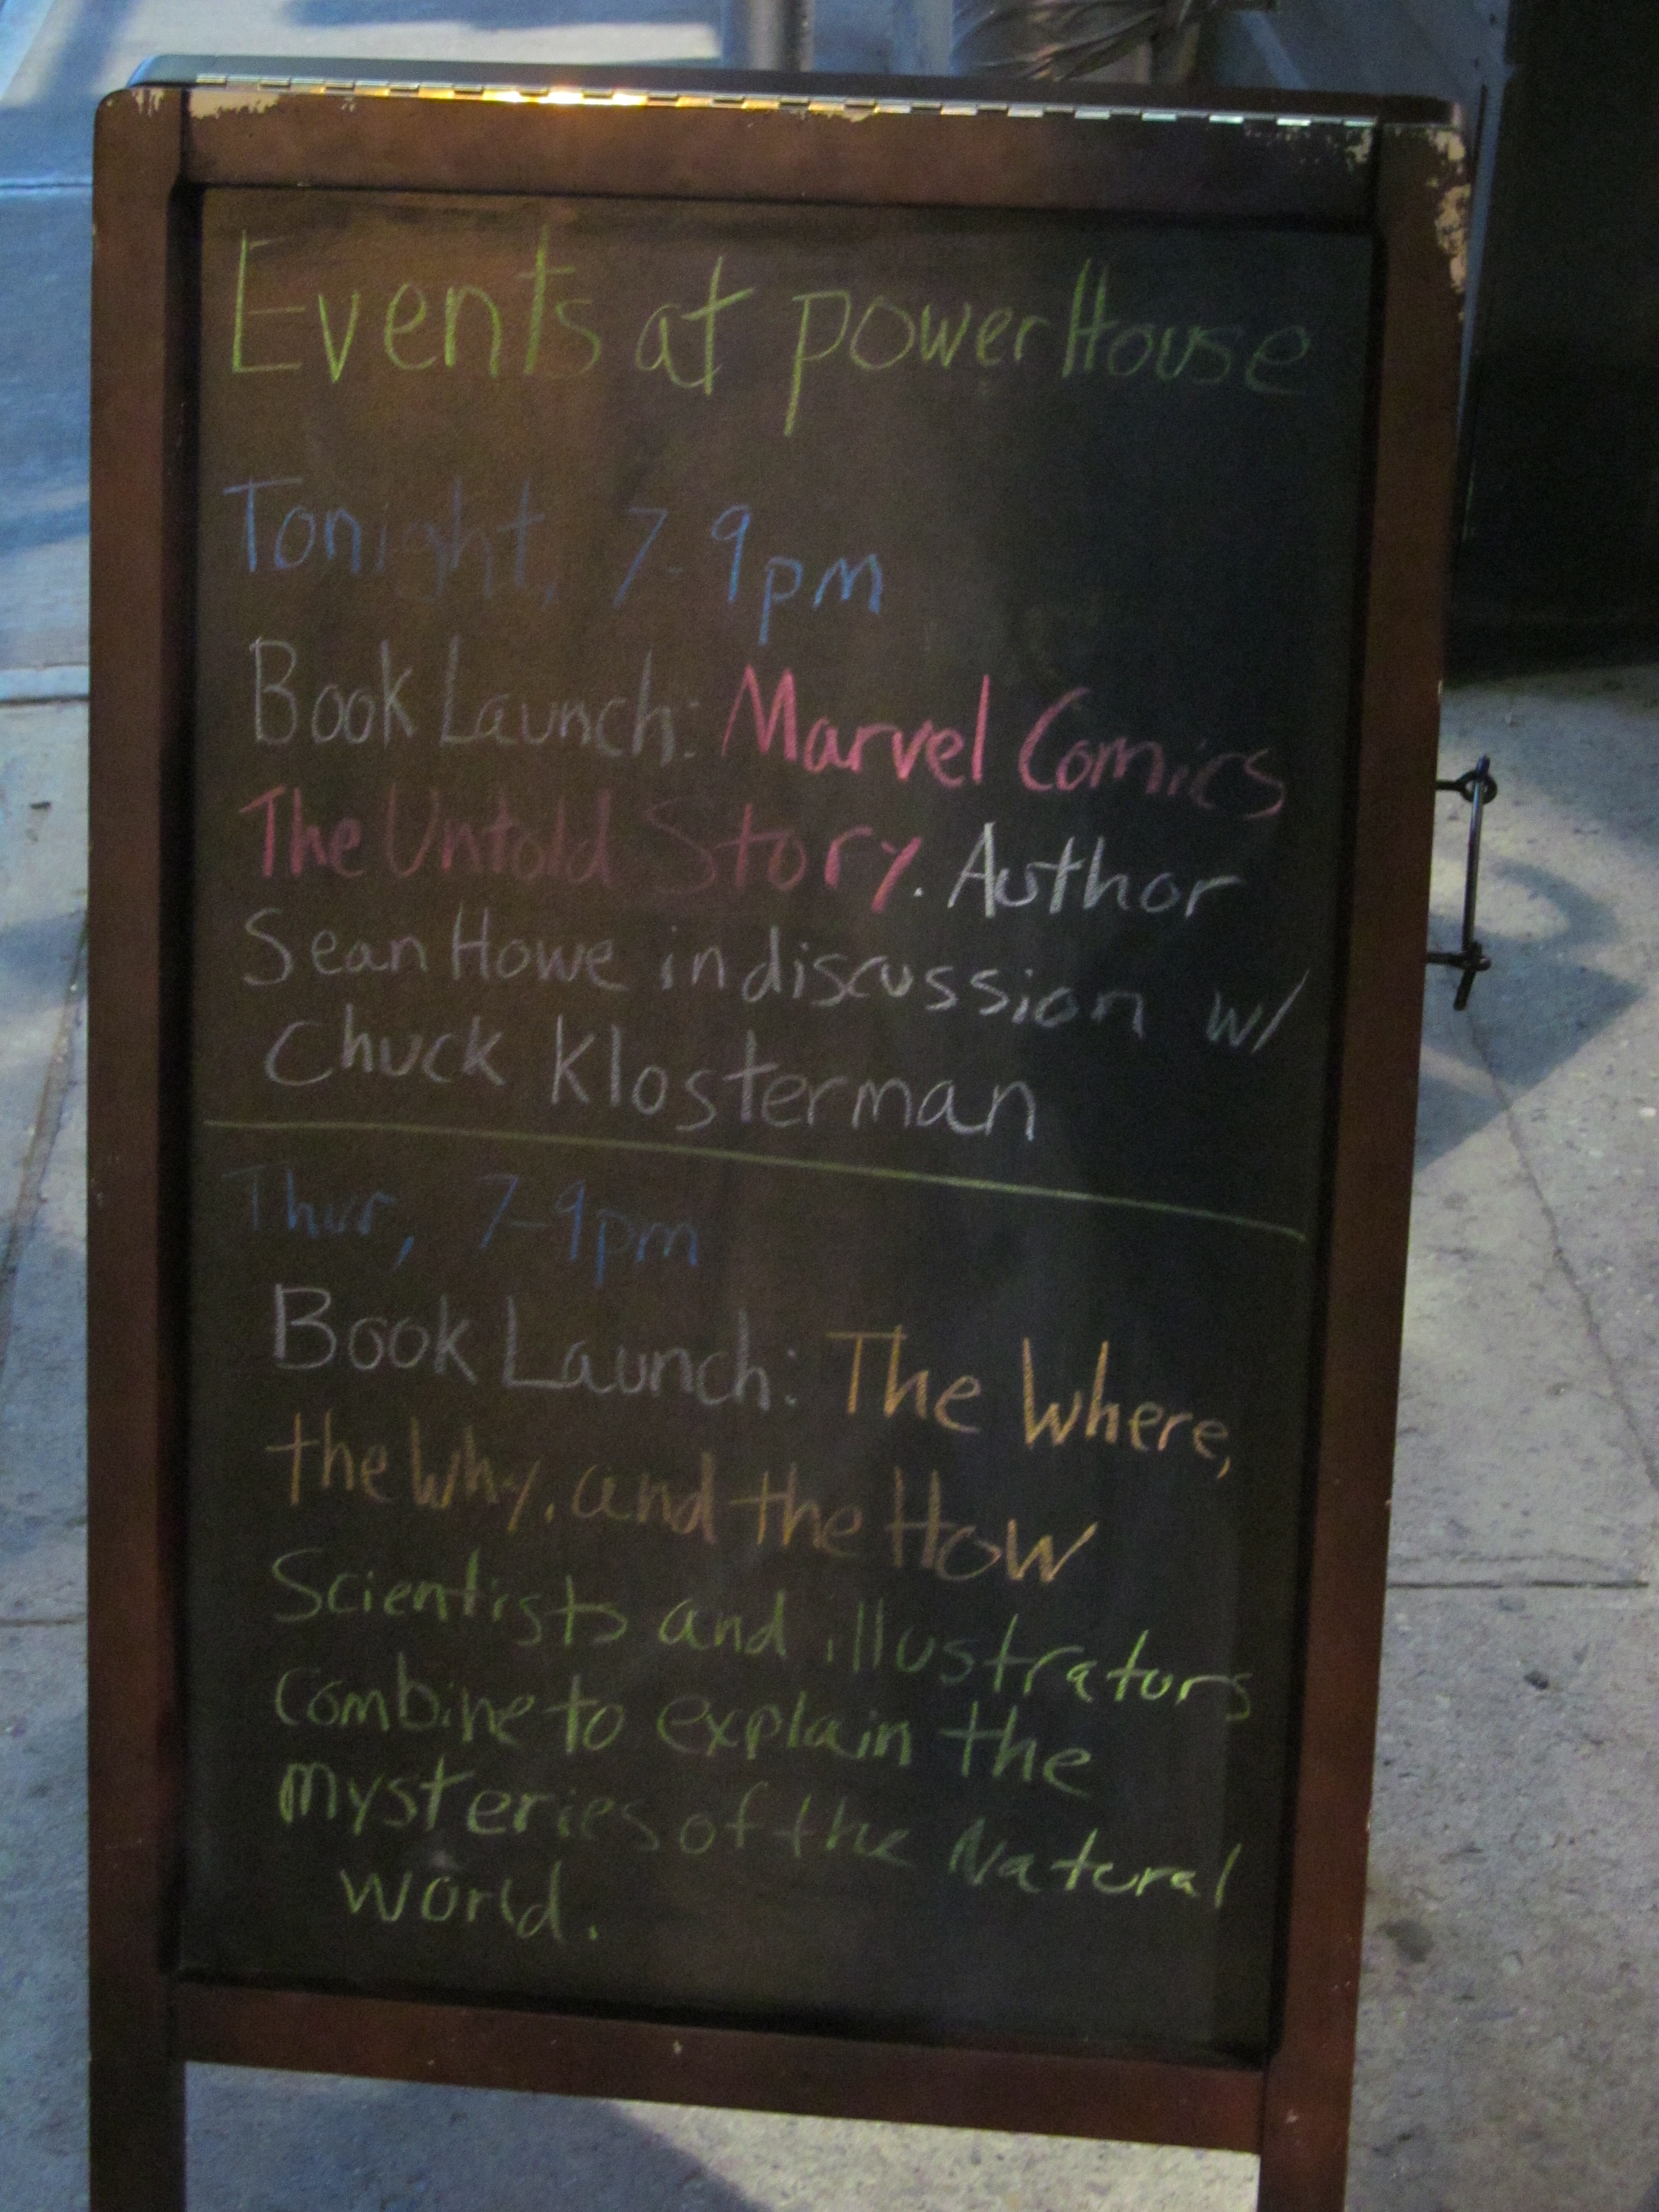 Events at powerHouse
Tonight, 7-9pm
Book Launch: Marvel Comics
The Untold Story. Author
Sean Howe in discussion w/
Chuck Klosterman
Thur, 7-9pm
Book Launch: The Where,
the Why, and the How
Scientists and illustrators
combine to explain the
mysteries of the Natural
world.